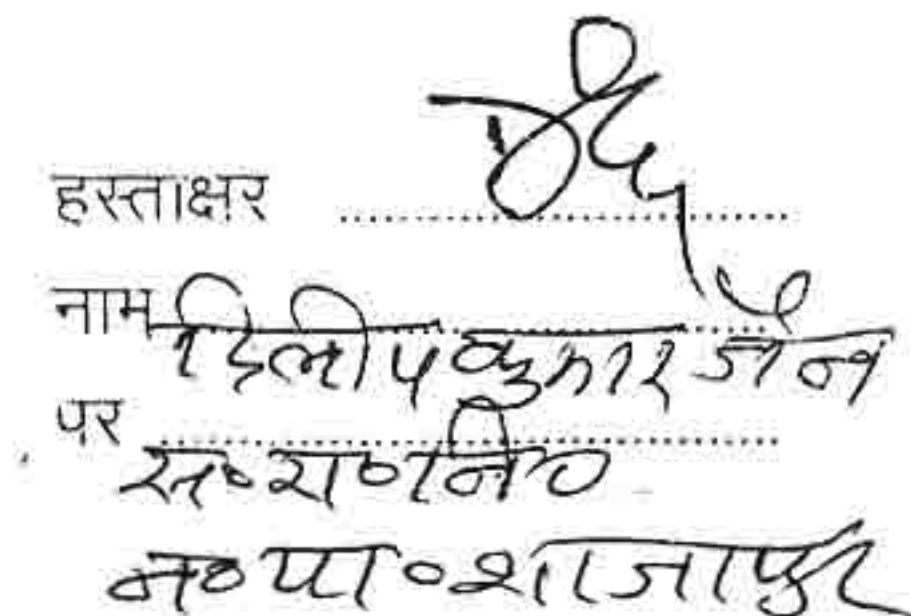 हस्ताक्षर
नाम दिलीप कुमार जैन
पर
स॰रा॰नि॰
न॰पा॰शाजापुर